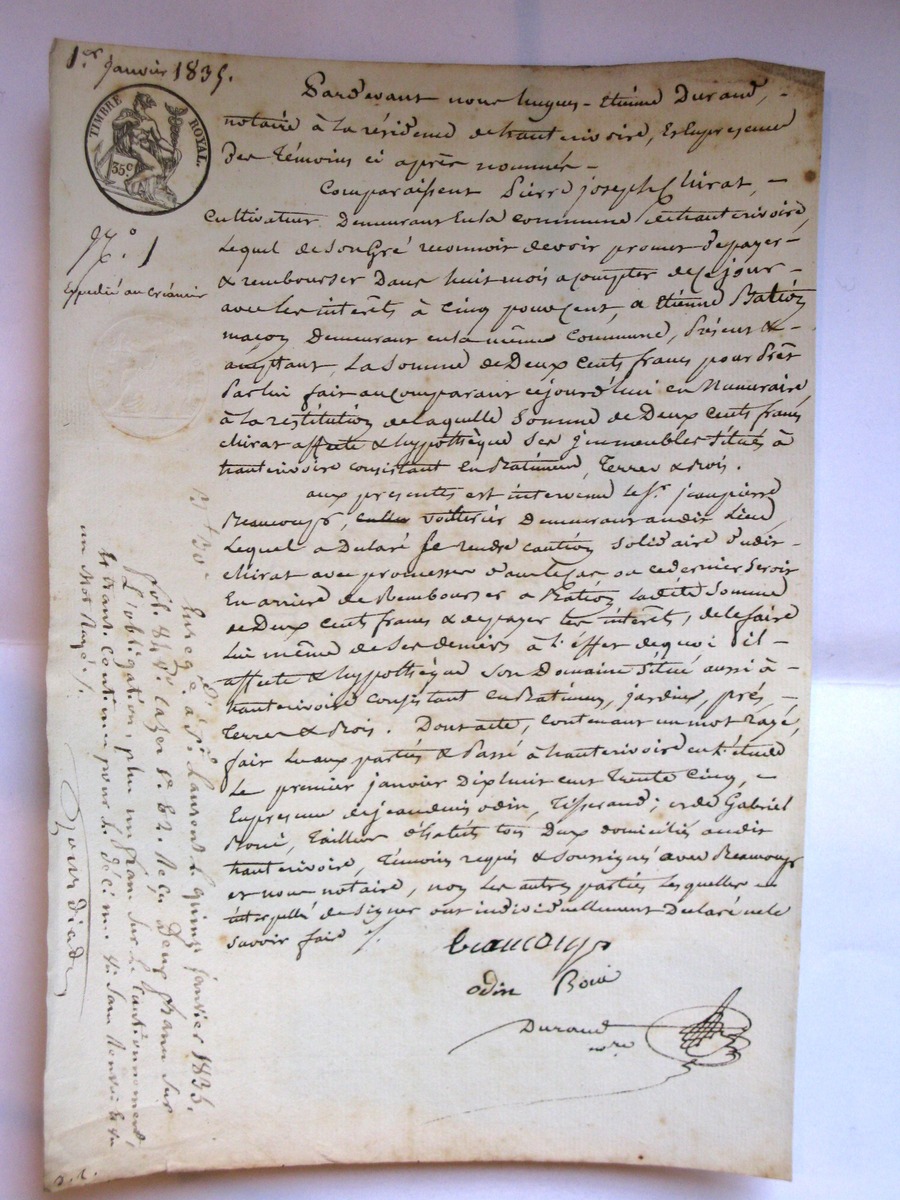 1er Janvier 1835.
TIMBRE ROYAL.
35c
N.o 1
Expédié au Créancier
Pardevant nous hugues-Etienne Durand,
notaire à la résidence de hauterivoire, Et En presence
Des témoins ci après nommés
Comparaissent Pierre joseph Chirat,
Cultivateur Demeurant En la commune de hauterivoire,
Lequel de Son Gré reconnoit devoir promet de payer
& rembourser Dans huit mois a compter de Ce jour
avec les interêts à Cinq pour Cent, a Etienne Bation
maçon Demeurant en la même Commune, Présent &
acceptant, La Somme de Deux Cents francs pour Prêt
Par lui fait au comparant cejourd'hui en Numeraire
à la restitution de laquelle Somme de Deux Cents francs
Chirat affecte & hypothèque Ses jmmeubles Situés à
hauterivoire consistant En Batiment, Terres & Bois.
aux presentes est intervenu le Sr. jean pierre
Beaucoup, voiturier Demeurant audit Lieu
Lequel a Declaré Se rendre caution Solidaire dudit
Chirat avec promesse d'au cas ou ce dernier Seroit
En arriere de Rembourser a Bation Ladite Somme
de Deux Cents francs & de payer les interêts, de le faire
Lui même de Ses deniers à L'effet de quoi il
affecte & hypothèque Son Domaine Situé aussi à
hauterivoire Consistant en Batimens, jardins, prés,
Terres & Bois. Dont acte, Contenant un mot rayé,
fait Lu aux parties & Passé à hauterivoire en L'étude
Le premier janvier Dix huit cent Trente Cinq,
En presence de jean denis odin, Tisserand; et de Gabriel
Roué, Tailleur d'habits tous Deux domiciliés audit
hauterivoire, Témoins requis & Soussignés avec Beaucoup
et nous notaire, non Les autres parties Lesquelles
interpellé de Signer ont individuellement Declaré ne le
Savoir faire
beaucoup
odin Roué
Durand
nre
Enregé. à St. Laurent le quinze janvier 1835.
fol. Vo. Case Reçu Deux francs Sur
L'obligation, plus un franc Sur le Cautionnement,
et trente centimes pour le décime Sans Renvoi
un Mot Rayé.